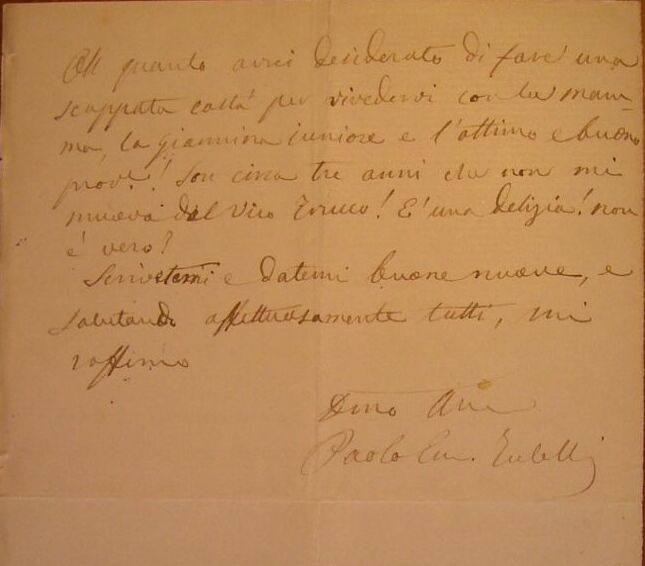 Oh quanto avrei desiderato di fare una
scappata costà per rivedervi con la mam-
ma, la Giannina iuniore e l'ottimo e buono
prov.! Son circa tre anni che non mi
mueva dal Vico! E' una delizia! non
è vero?
Scrivetemi e datemi buone nuove, e
salutando affettuosamente tutti, mi
raffermo
Paolo